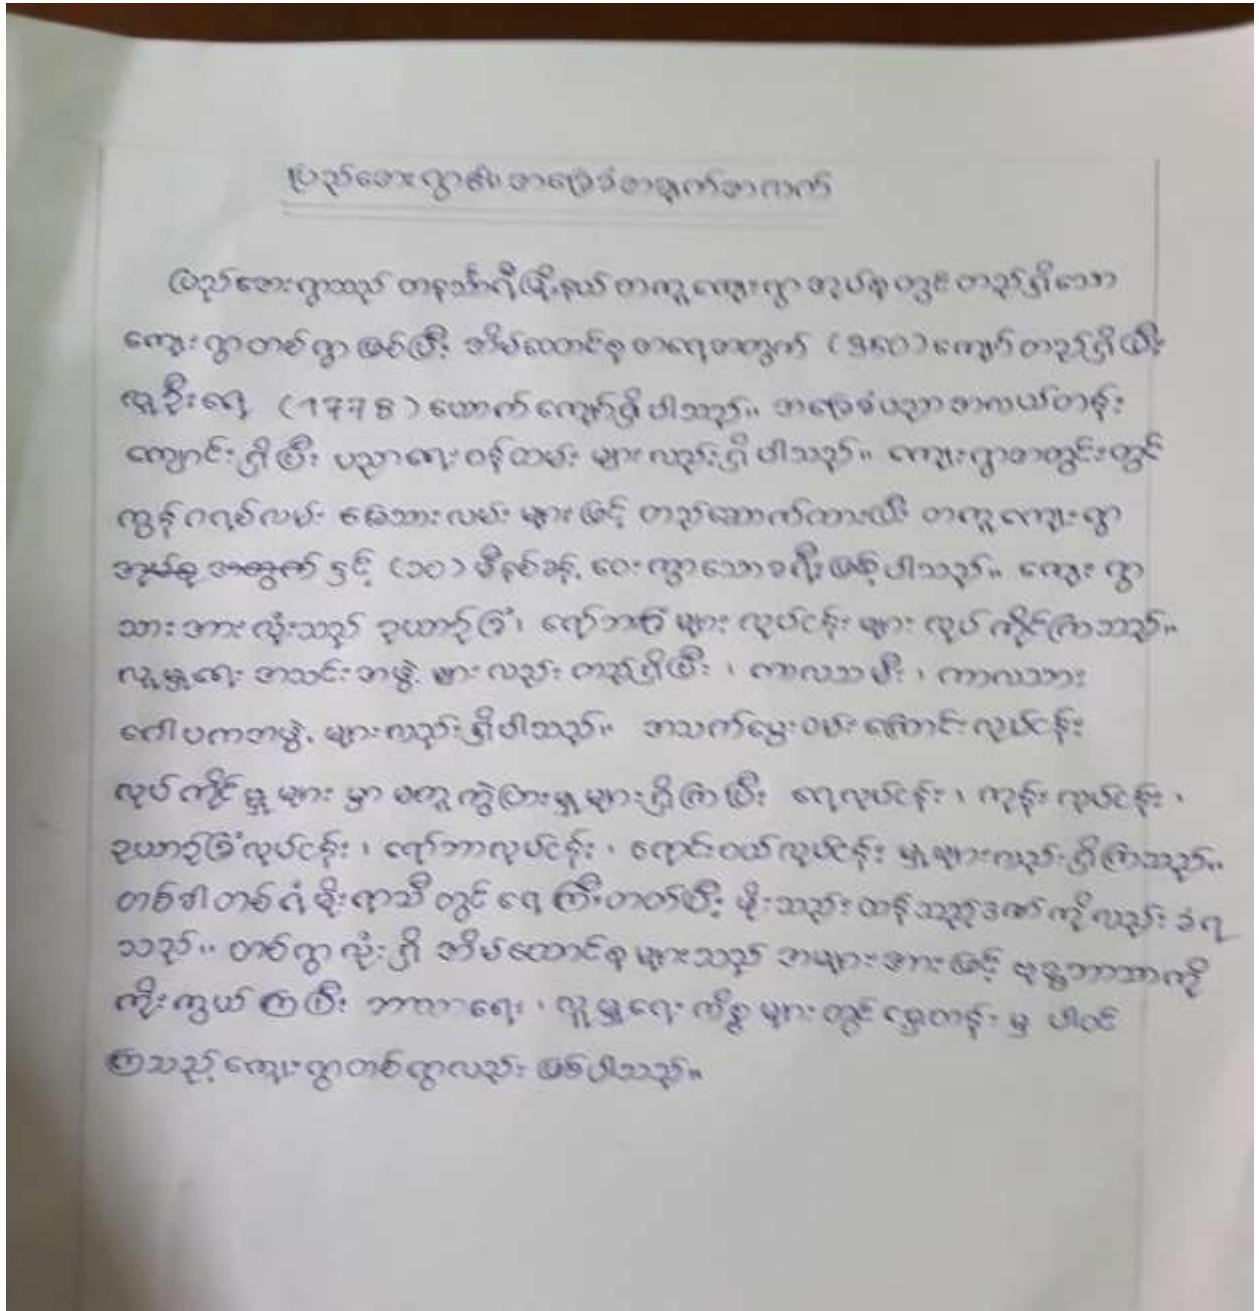 ပြည်ဘေးရွာ၏ အခြေခံအချက်အလက်
ပြည်ဘေးရွာသည် တနင်္သာရီမြို့နယ် တကူကျေးရွာ အုပ်စုတွင် တည်ရှိသော
ကျေးရွာတစ်ရွာ ဖြစ်ပြီး အိမ်ထောင်စု အရေအတွက် (350) ကျော် တည်ရှိပြီး
လူဦးရေ (1778) ယောက်ကျော်ရှိပါသည်။ အခြေခံပညာ အလယ်တန်း
ကျောင်းရှိပြီး ပညာရေးဝန်ထမ်း များလည်းရှိပါသည်။ ကျေးရွာအတွင်းတွင်
ကွန်ဂရစ်လမ်း မြေသားလမ်း များဖြင့် တည်ဆောက်ထားပြီး တကူကျေးရွာ
နှင့် (၁၀) မိနစ်ခန့် ဝေးကွာသောခရီးဖြစ်ပါသည်။ ကျေးရွာ
သားအားလုံးသည် ဥယာဉ်ခြံ၊ ရော်ဘာခြံ များ လုပ်ငန်းများ လုပ်ကိုင်ကြသည်။
လူမှုရေး အသင်းအဖွဲ့ များ လည်း တည်ရှိပြီး ၊ ကာလသမီး ၊ ကာလသား
ဂေါပကအဖွဲ့ များလည်းရှိပါသည်။ အသက်မွေးဝမ်းကြောင်းလုပ်ငန်း
လုပ်ကိုင်မှုများ မှာ မတူကွဲပြားမှုများရှိကြပြီး ရေလုပ်ငန်း ၊ ကုန်းလုပ်ငန်း ၊
ဥယာဉ်ခြံလုပ်ငန်း ၊ ရော်ဘာလုပ်ငန်း ၊ ရောင်းဝယ်လုပ်ငန်း မှုများလည်းရှိကြသည်။
တစ်ခါတစ်ရံ မိုးရာသီ တွင် ရေကြီးတတ်ပြီး မိုးသည်းထန်သည့်ဒဏ်ကိုလည်း ခံရ
သည်။ တစ်ရွာလုံးရှိ အိမ်ထောင်စုများသည် အများအားဖြင့် ဗုဒ္ဓဘာသာကို
ကိုးကွယ်ကြပြီး ဘာသာရေး ၊ လူမှုရေး ကိစ္စများတွင် ရှေ့တန်းမှ ပါဝင်
ကြသည့်ကျေးရွာတစ်ရွာလည်း ဖြစ်ပါသည်။